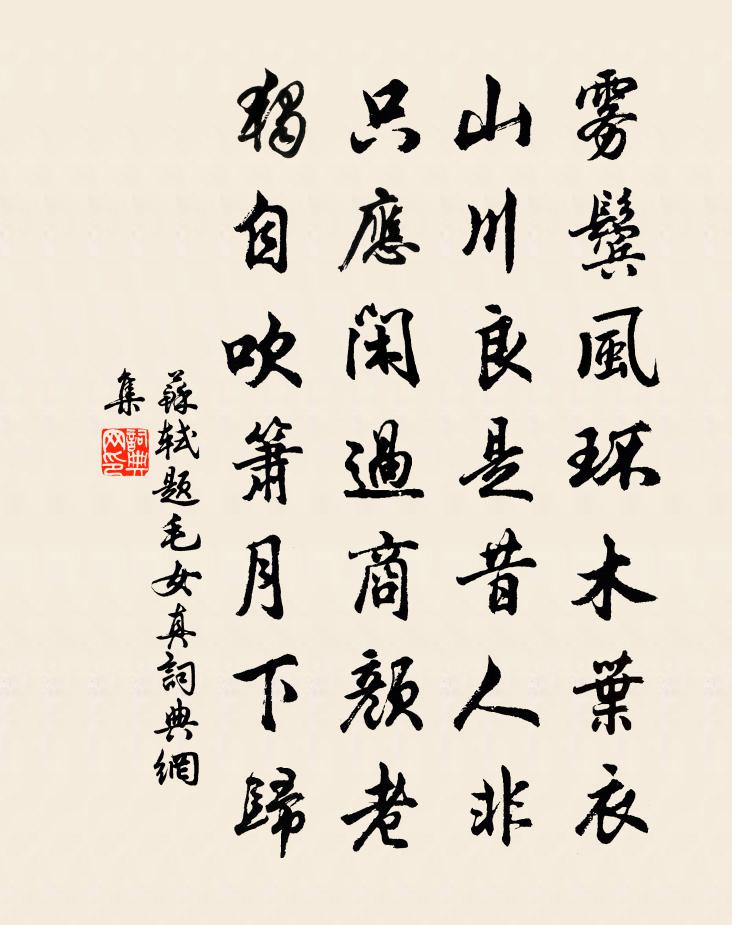 雾鬢風環木葉衣
山川良是昔人非
只應閑過商顔老
獨自吹簫月下歸
蘇軾題毛女真詞典網
集
詞典
网印